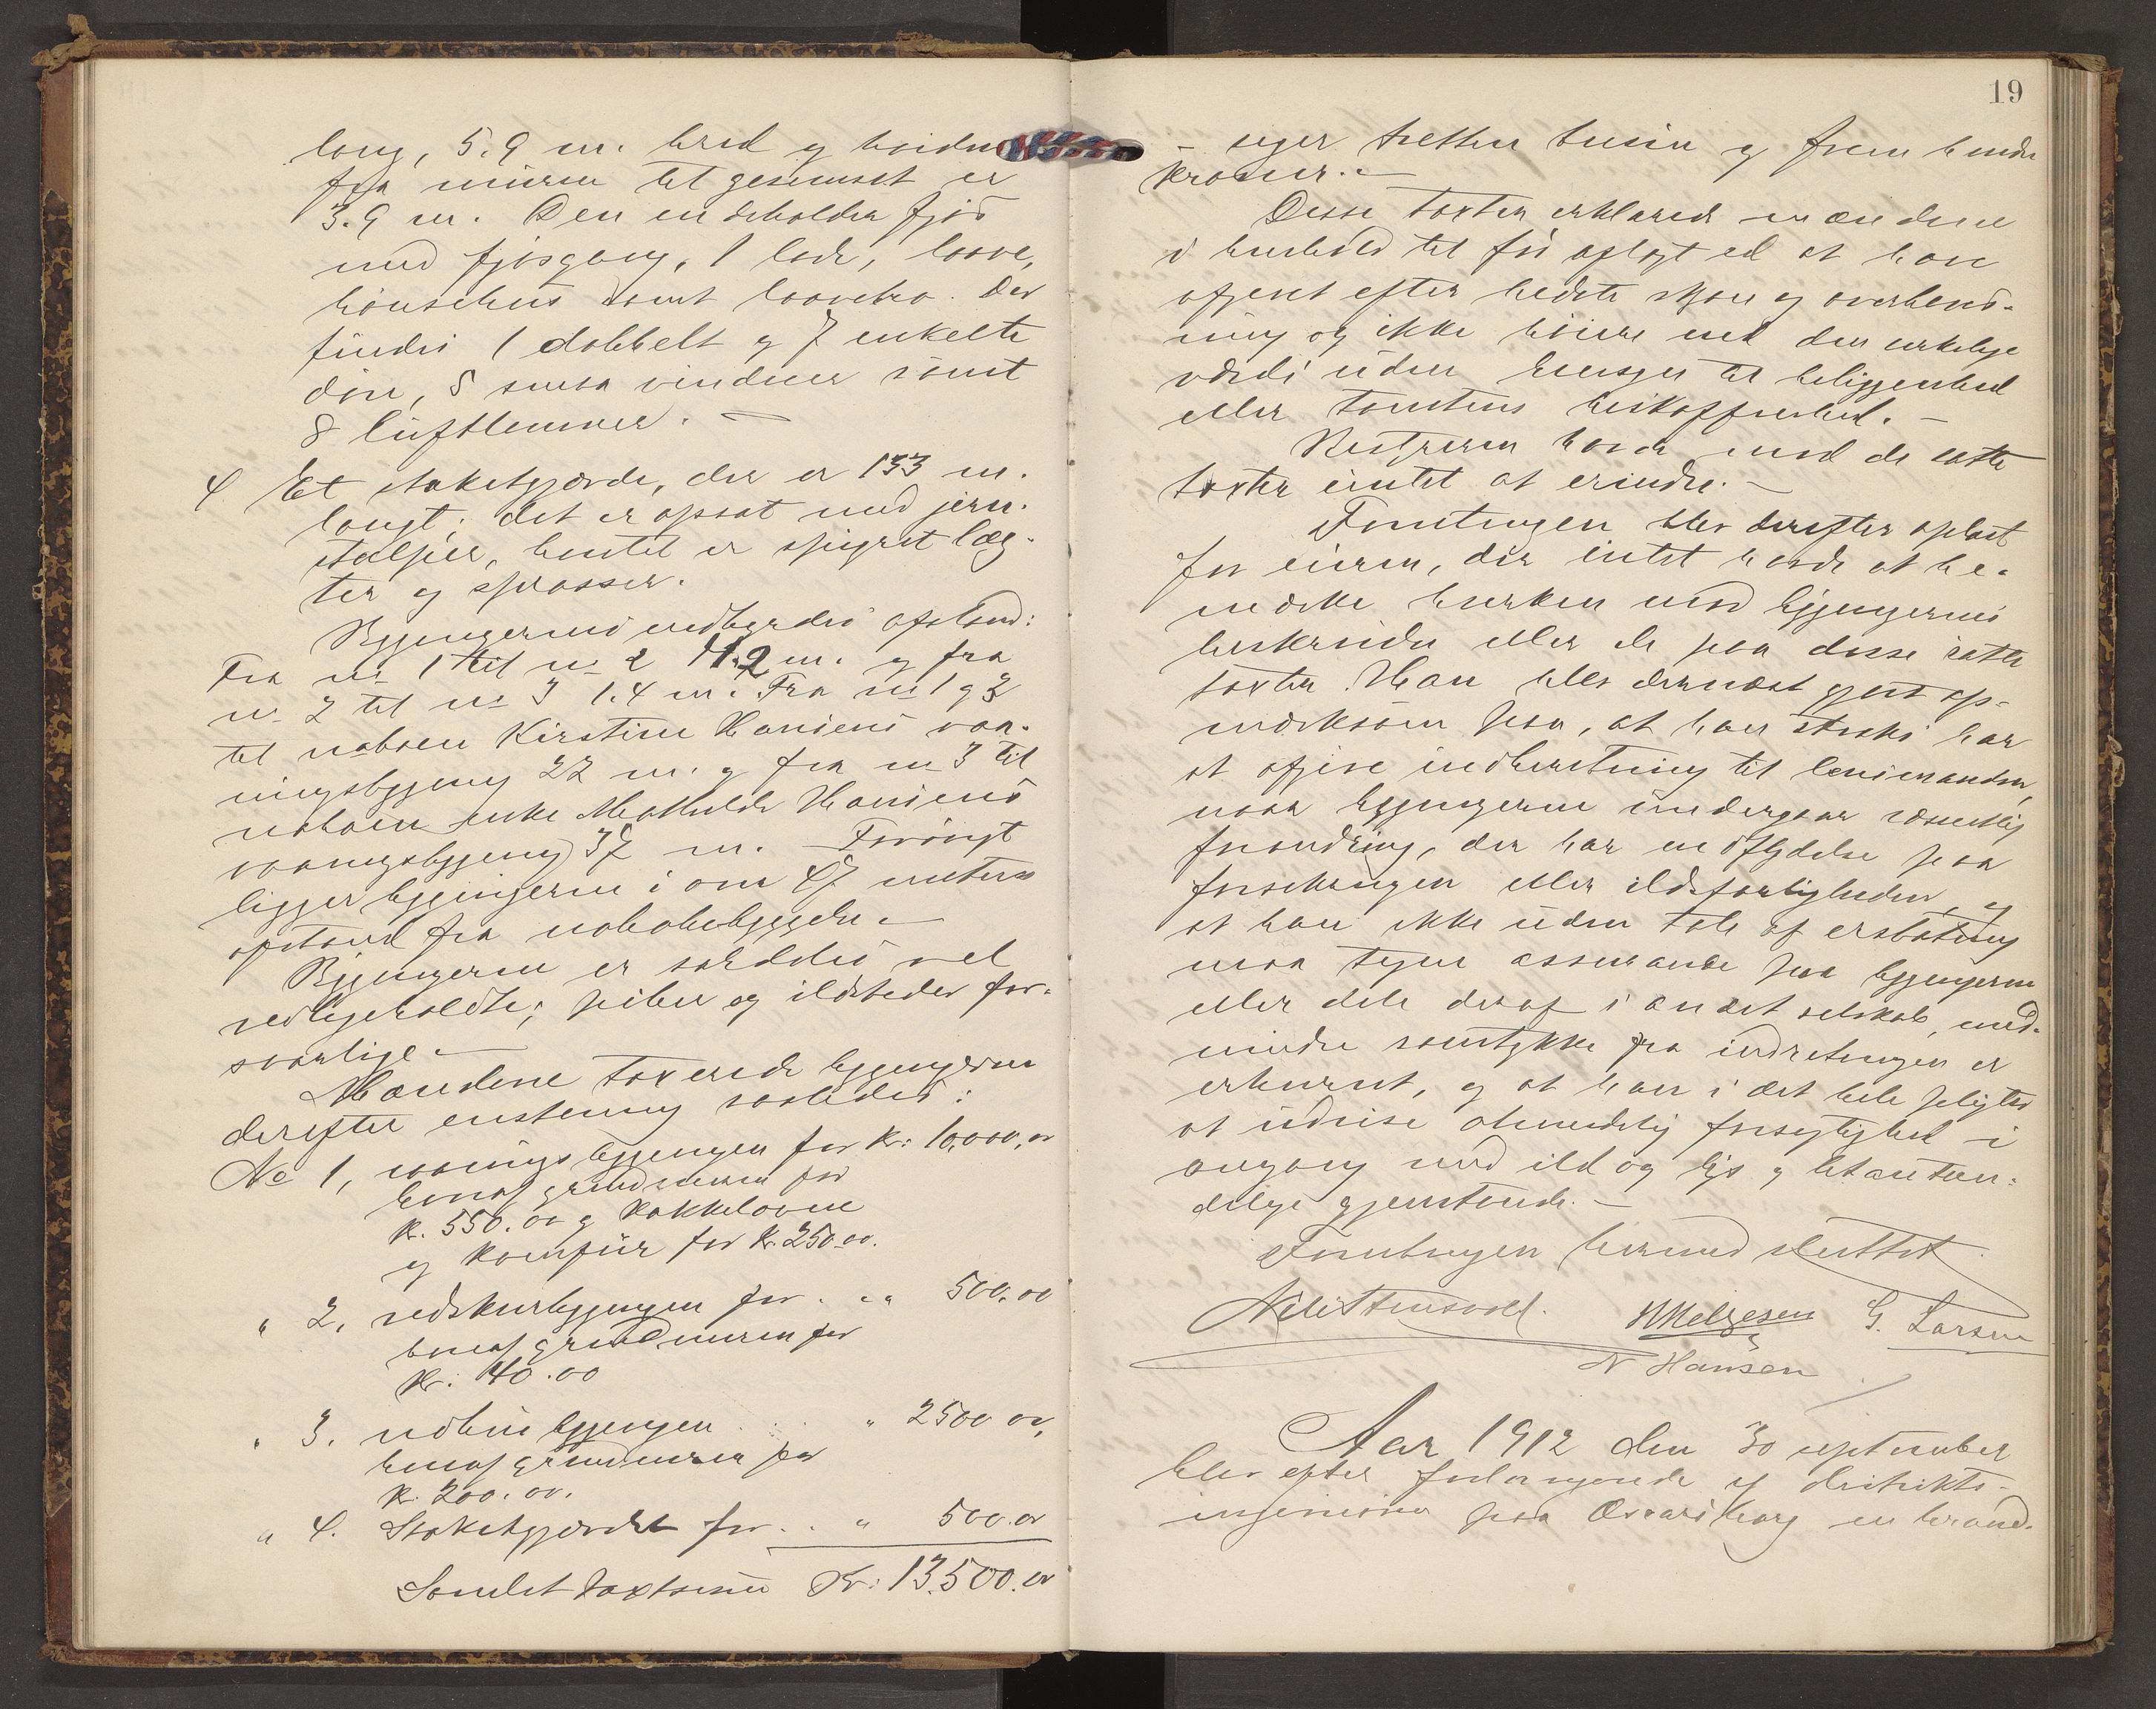 lang, 5.9 m. bred og høiden
fra muren til gesimset er
3.9 m. Den indeholder fjøs
med fjøsgang, 1 lade, laave,
hønsehus samt laavebro. Der
findes 1 dobbelt og 7 enkelte
døre, 5 smaa vinduer samt
8 luftlemmer. —
4 Et staketgjærde, der er 133 m.
langt; det er opsat med jern-
stolper, hvortil er spigret læg-
ter og sprosser.
Bygningernes indbyrdes afstand:
Fra no 1 til no 2 11.2 m. og fra
no 2 til no 3 1.4 m. Fra no 1 og 3
til naboen Kirstine Hansens vaa-
ningsbygning 22 m. og fra no 3 til
naboen enke Mathilde Hansens
vaaningsbygning 37 m. Forøvrigt
ligger bygningerne i over 47 meters
afstand fra nabobebyggelse. —
Bygningerne er særdeles vel
vedligeholdte; piber og ildsteder for-
svarlige. —
Mændene taxerede bygningerne
derefter enstemmig saaledes:
No 1, vaaningsbygningen for kr: 10,000,00
heraf grundmuren for
kr. 550.00 og kakkelovne
og komfur for kr 250.00.
" 2, vedskurbygningen for . " 500,00
heraf grundmuren for
kr: 40.00
" 3. udhusbygningen . . . " 2500 00,
heraf grundmuren for
kr. 200.00.
" 4. Staketgjærdet for . . " 500.00
Samlet taxtsum Kr: 13.500.00
19
— siger tretten tusin og fem hundre
kroner. —
Disse taxter erklærede mændene
i henhold til før aflagt ed at have
afgivet efter bedste skjøn og overbevis-
ning og ikke høiere end den virkelige
værdi uden hensyn til beliggenhed
eller tomtens beskaffenhed. —
Bestyreren havde mod de satte
taxter intet at erindre. —
Forretningen blev derefter oplæst
for eieren, der intet havde at be-
mærke hverken mod bygningernes
beskrivelse eller de paa disse satte
taxter. Han blev dernæst gjort op-
mærksom paa, at han straks har
at afgive indberetning til lensmanden,
naar bygningerne undergaar væsentlig
forandring, der har indflydelse paa
forsikringen eller ildsfarligheden, og
at han ikke uden tab af erstatning
maa tegne assurance paa bygningerne
eller dele deraf i andet selskab, med-
mindre samtykke fra indretningen er
erhvervet, og at han i det hele pligter
at udvise almindelig forsigtighed i
omgang med ild og lys og letantæn-
delige gjenstande. —
Forretningen hermed sluttet
H Melgesen G. Larsen
N Hansen
Aar 1912 den 30 september
blev efter forlangende af distrikts-
ingeniøren paa Oscarsborg en brand-